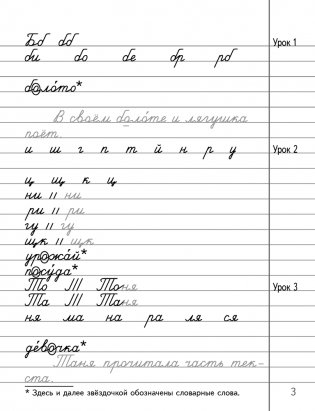 Бб бб Урок 1
би бо бе бр рб
боло́то*
В своём болоте и лягушка
поёт.
и ш г п т й н р у Урок 2
ц щ к ц
ни // ни
ри // ри
гу // гу
щк // щк
урожа́й*
посу́да*
То /// Тоня Урок 3
Та /// Таня
ня ма на ра ля ся
де́вочка*
Таня прочитала часть тек-
ста.
* Здесь и далее звёздочкой обозначены словарные слова. 3